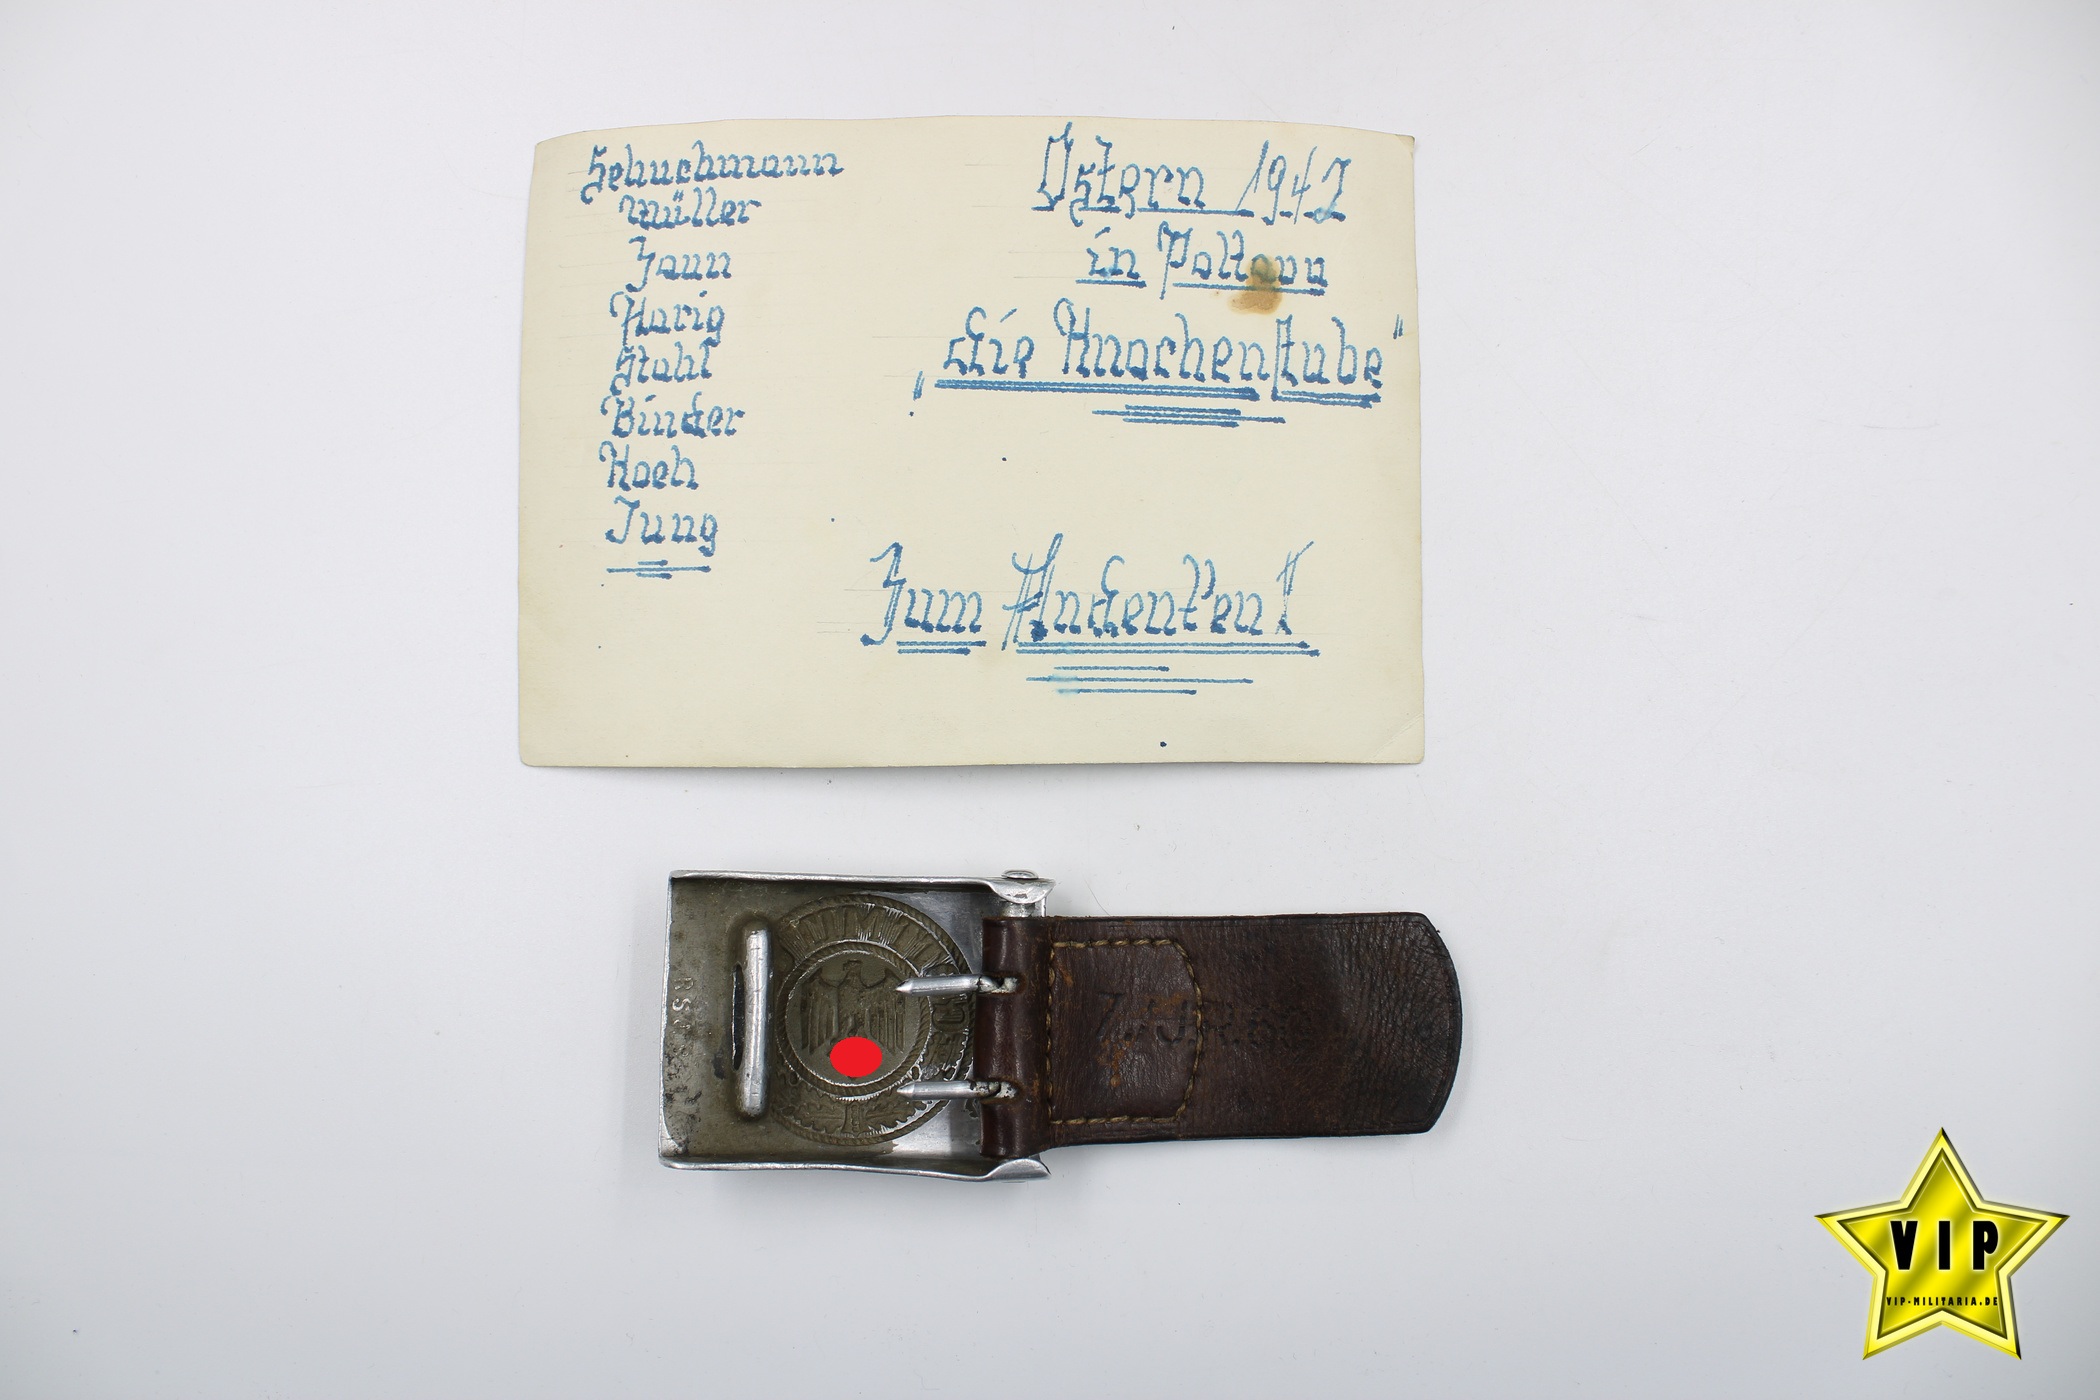 Schuchmann
Müller
Zaun
Harig
Stahl
Binder
Koch
Jung
Ostern 1942
in Poltava
„Die Knochenstube"
Zum Andenken!
VIP
VIP-MILITARIA.DE